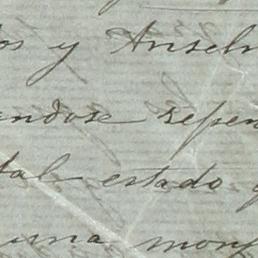 os y Anselm
endose repen
tal estado
una mon